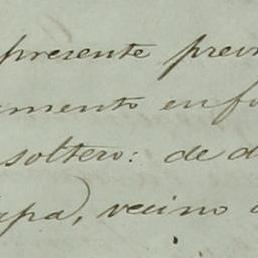 presente previ
mento en fo
soltero: de d
apa, vecino d